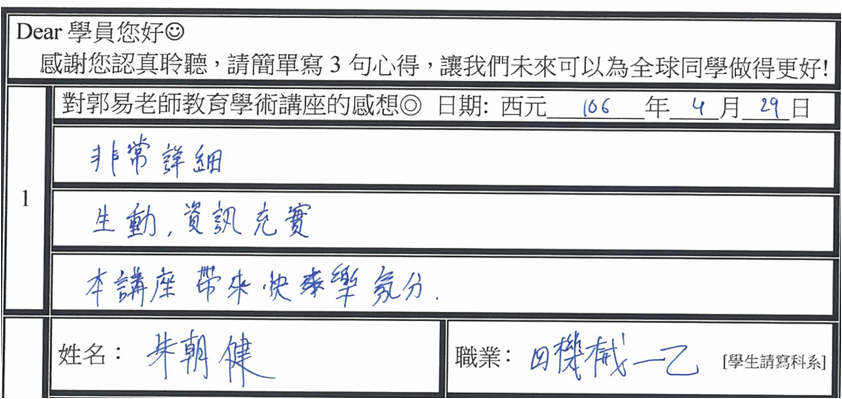 Dear 學員您好☺
感謝您認真聆聽，請簡單寫 3 句心得，讓我們未來可以為全球同學做得更好!
對郭易老師教育學術講座的感想◎ 日期: 西元 106 年 4 月 29 日
1
非常詳細
生動,資訊充實
本講座帶來快樂氛分.
姓名： 朝健
職業： 四機械一乙 [學生請寫科系]